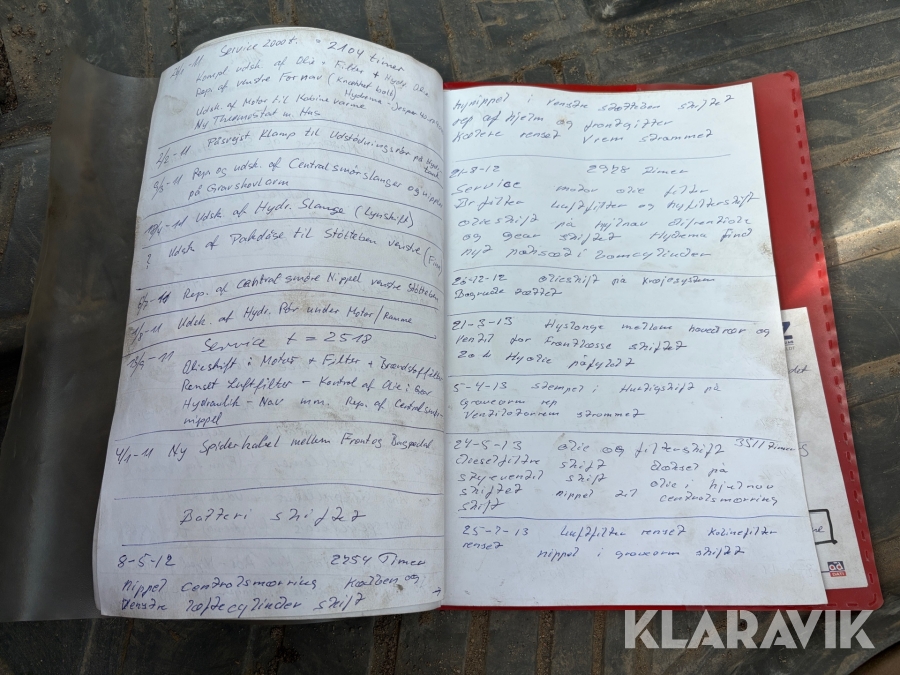 -11 Service 2000 t. = 2104 timer
Kompl udsk. af Olie + Filtre + Hydr. Olie
Rep. af venstre Fornav (Knækket bolt)
Udsk. af Motor til Kabinevarme Hydrema - Jesper
Ny Thermostat m. Hus
-11 Påsvejst Klamp til Udstødningsrør på Hydr. tank
-11 Rep. og udsk. af Centralsmørslanger og nipler
på Gravehovlarm
Udsk af Hydr. Slange (Lynskift)
? Udsk af Pakdåse til Støtteben venstre
Rep. af Centralsmøre Nippel venstre Støtteben
-11 Udsk. af Hydr. Rør under Motor/Ramme
-11 Service t = 2518
Olieskift i Motor + Filter + Brændstoffilter
Renset Luftfilter - Kontrol af Olie i Gear
Hydraulik - Nav m.m. Rep. af Centralsmøre-
nippel
4/1-11 Ny Spiderkabel mellem Front og Bagpedal
Batteri skiftet
8-5-12 2754 Timer
Nippel centralsmørring og
Venstre løftecylinder skift
Hynippel i venstre støtteben skiftet
rep af hjelm og frontgitter
Kølere renset Vrem strammet
21-8-12 2978 Timer
Service motor olie filter
Br filter luftfilter og hyfilterskift
olieskift på hjulnav
og gear skiftet Hydema
nyt
26-12-12 olieskift på krøjesystem
Bagrude
21-3-13 Hyslange mellem hovedrør og
ventil for skiftet
20 L Hyolie påfyldt
5-4-13 stempel i Hurtigskift på
gravearm rep
Ventilatorrem strammet
24-5-13 olie og filterskift 3511 timer
Dieselfiltre skift på
styreventil skift olie i hjulnav
skiftet nippel til centralsmørring
skift
25-7-13 Luftfilter renset kabinefilter
renset nippel i gravearm skiftet
KLARAVIK